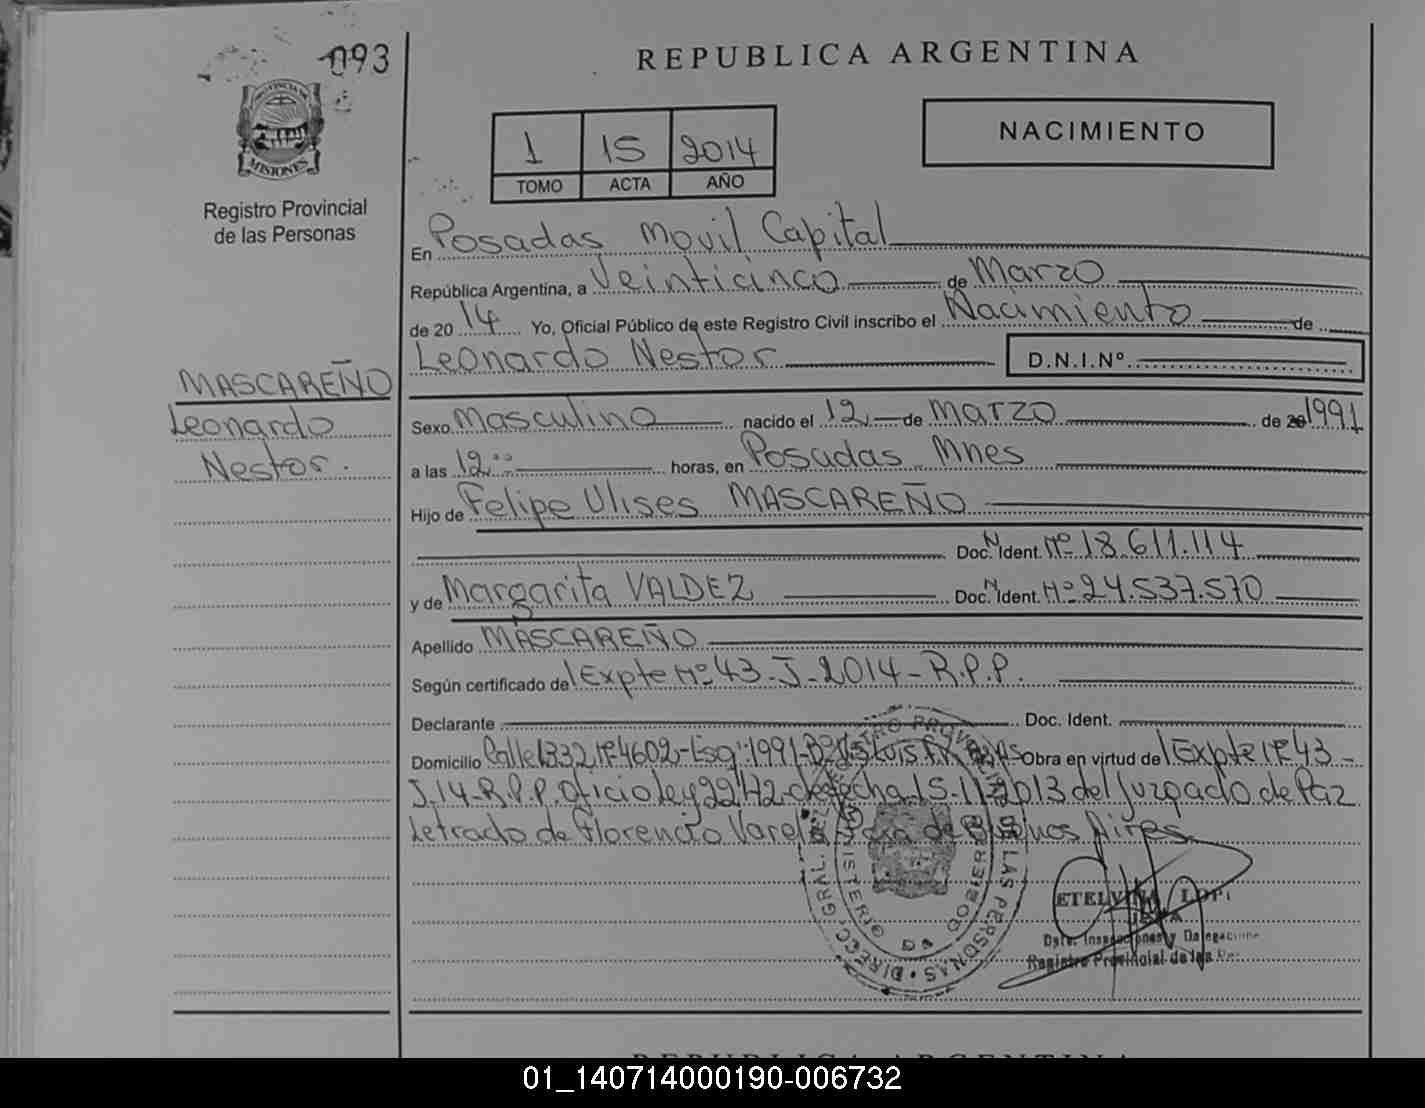 093
REPUBLICA ARGENTINA
PROVINCIA DE
MISIONES
Registro Provincial
de las Personas
1 15 2014
TOMO ACTA AÑO
NACIMIENTO
En Posadas Movil Capital
República Argentina, a Veinticinco de Marzo
de 20 14 Yo, Oficial Público de este Registro Civil inscribo el Nacimiento de
Leonardo Nestor D.N.I.Nº
MASCAREÑO
Leonardo
Nestor.
Sexo Masculino nacido el 12 de Marzo de 20 1991
a las 12 horas, en Posadas Mnes
Hijo de Felipe Ulises MASCAREÑO
Doc. N. Ident. Nº 18.611.114
y de Margarita VALDEZ Doc. N. Ident. Nº 24.537.570
Apellido MASCAREÑO
Según certificado de Expte Nº 43-J-2014-R.P.P.
Declarante Doc. Ident.
Domicilio Calle 1332 Nº 4602-Esq. 1991-Bº Obra en virtud de Expte Nº 43-
J.14-R.P.P. Oficio Ley 22172 de fecha 15-11-2013 del Juzgado de Paz
Letrado de Florencio Varela de Buenos Aires.
DIRECC. GRAL. DEL REGISTRO PROVINCIAL DE LAS PERSONAS
MINISTERIO DE GOBIERNO
ETELVINA
JEFA
Dpto. Inspecciones y Delegaciones
Registro Provincial de las
REPUBLICA ARGENTINA
01_140714000190-006732